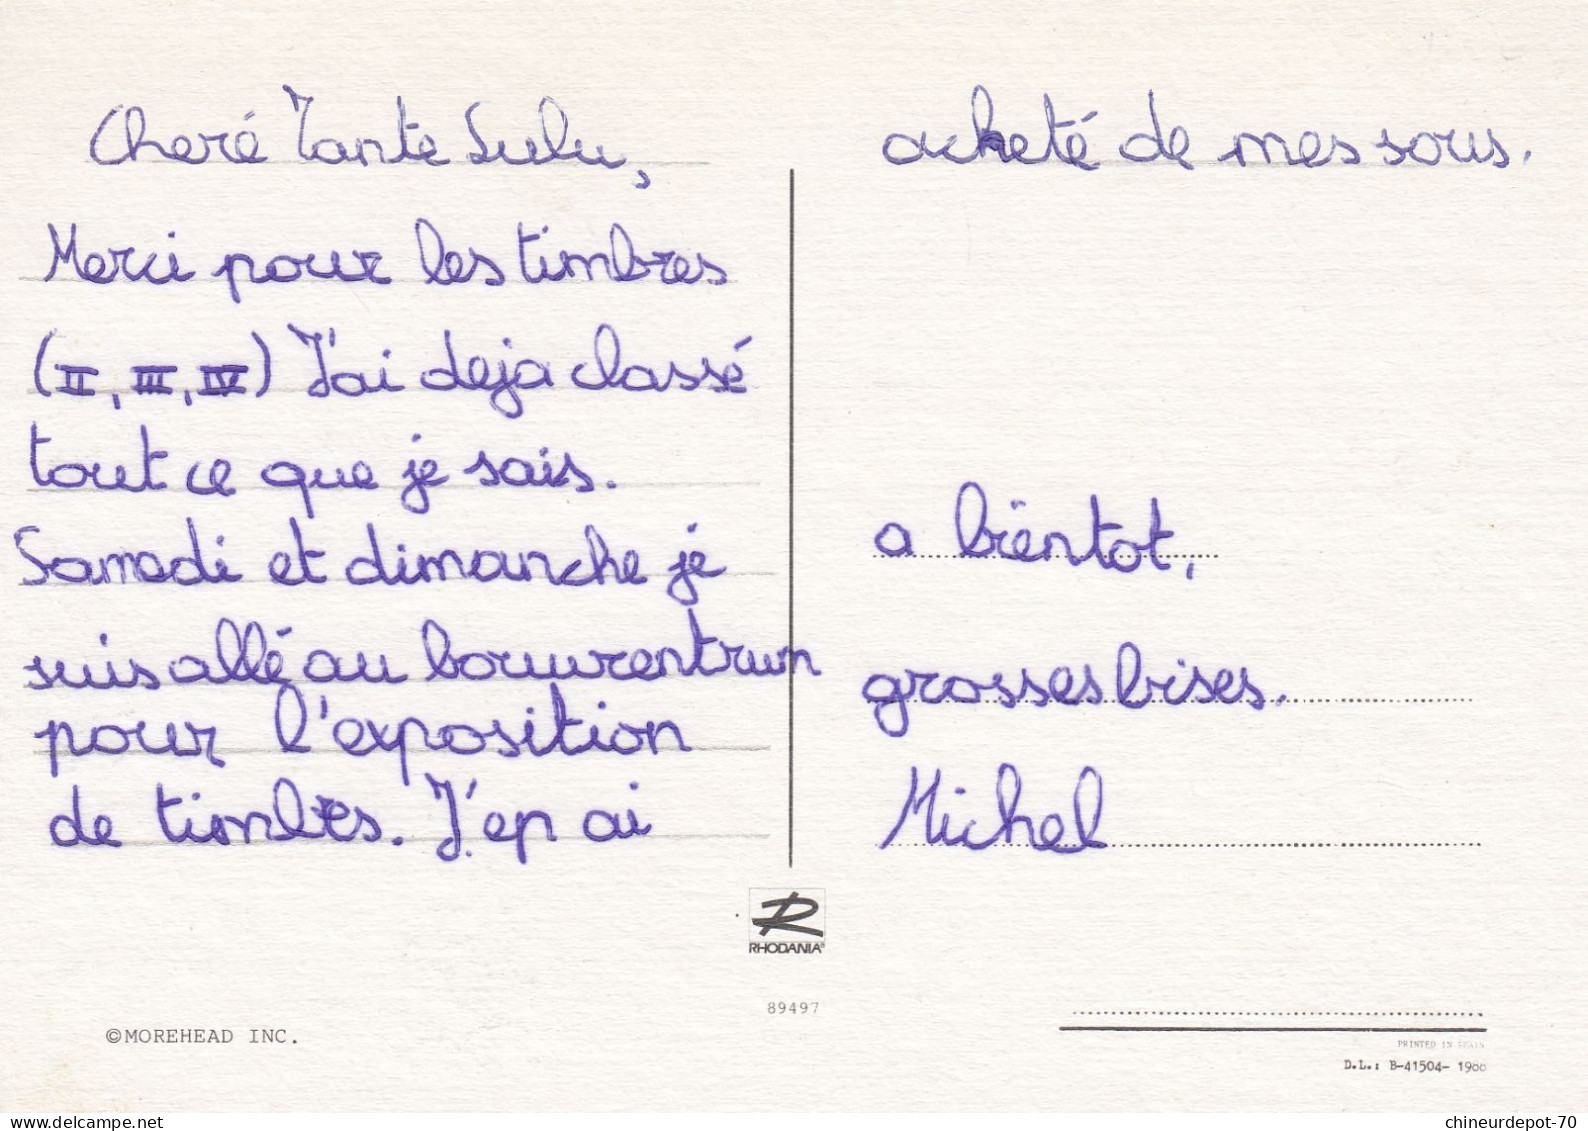 Cheré Tante Lulu,
Merci pour les timbres
(II, III, IV) J'ai deja classé
tout ce que je sais.
Samedi et dimanche je
suis allé au bouwcentrum
pour l'exposition
de timbres. J'ep ai
acheté de mes sous.
a bientot,
grosses bises.
Michel
RHODANIA
89497
©MOREHEAD INC.
PRINTED IN SPAIN
D.L.: B-41504- 1986
chineurdepot-70